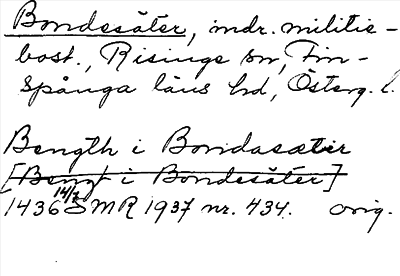 Bondesäter, indr. militie-
bost., Risinge sn, Fin-
spånga läns hd, Österg. l.
Bength i Bondasæter
[Bengt i Bondesäter]
1436 14/7 SMR 1937 nr. 434. orig.